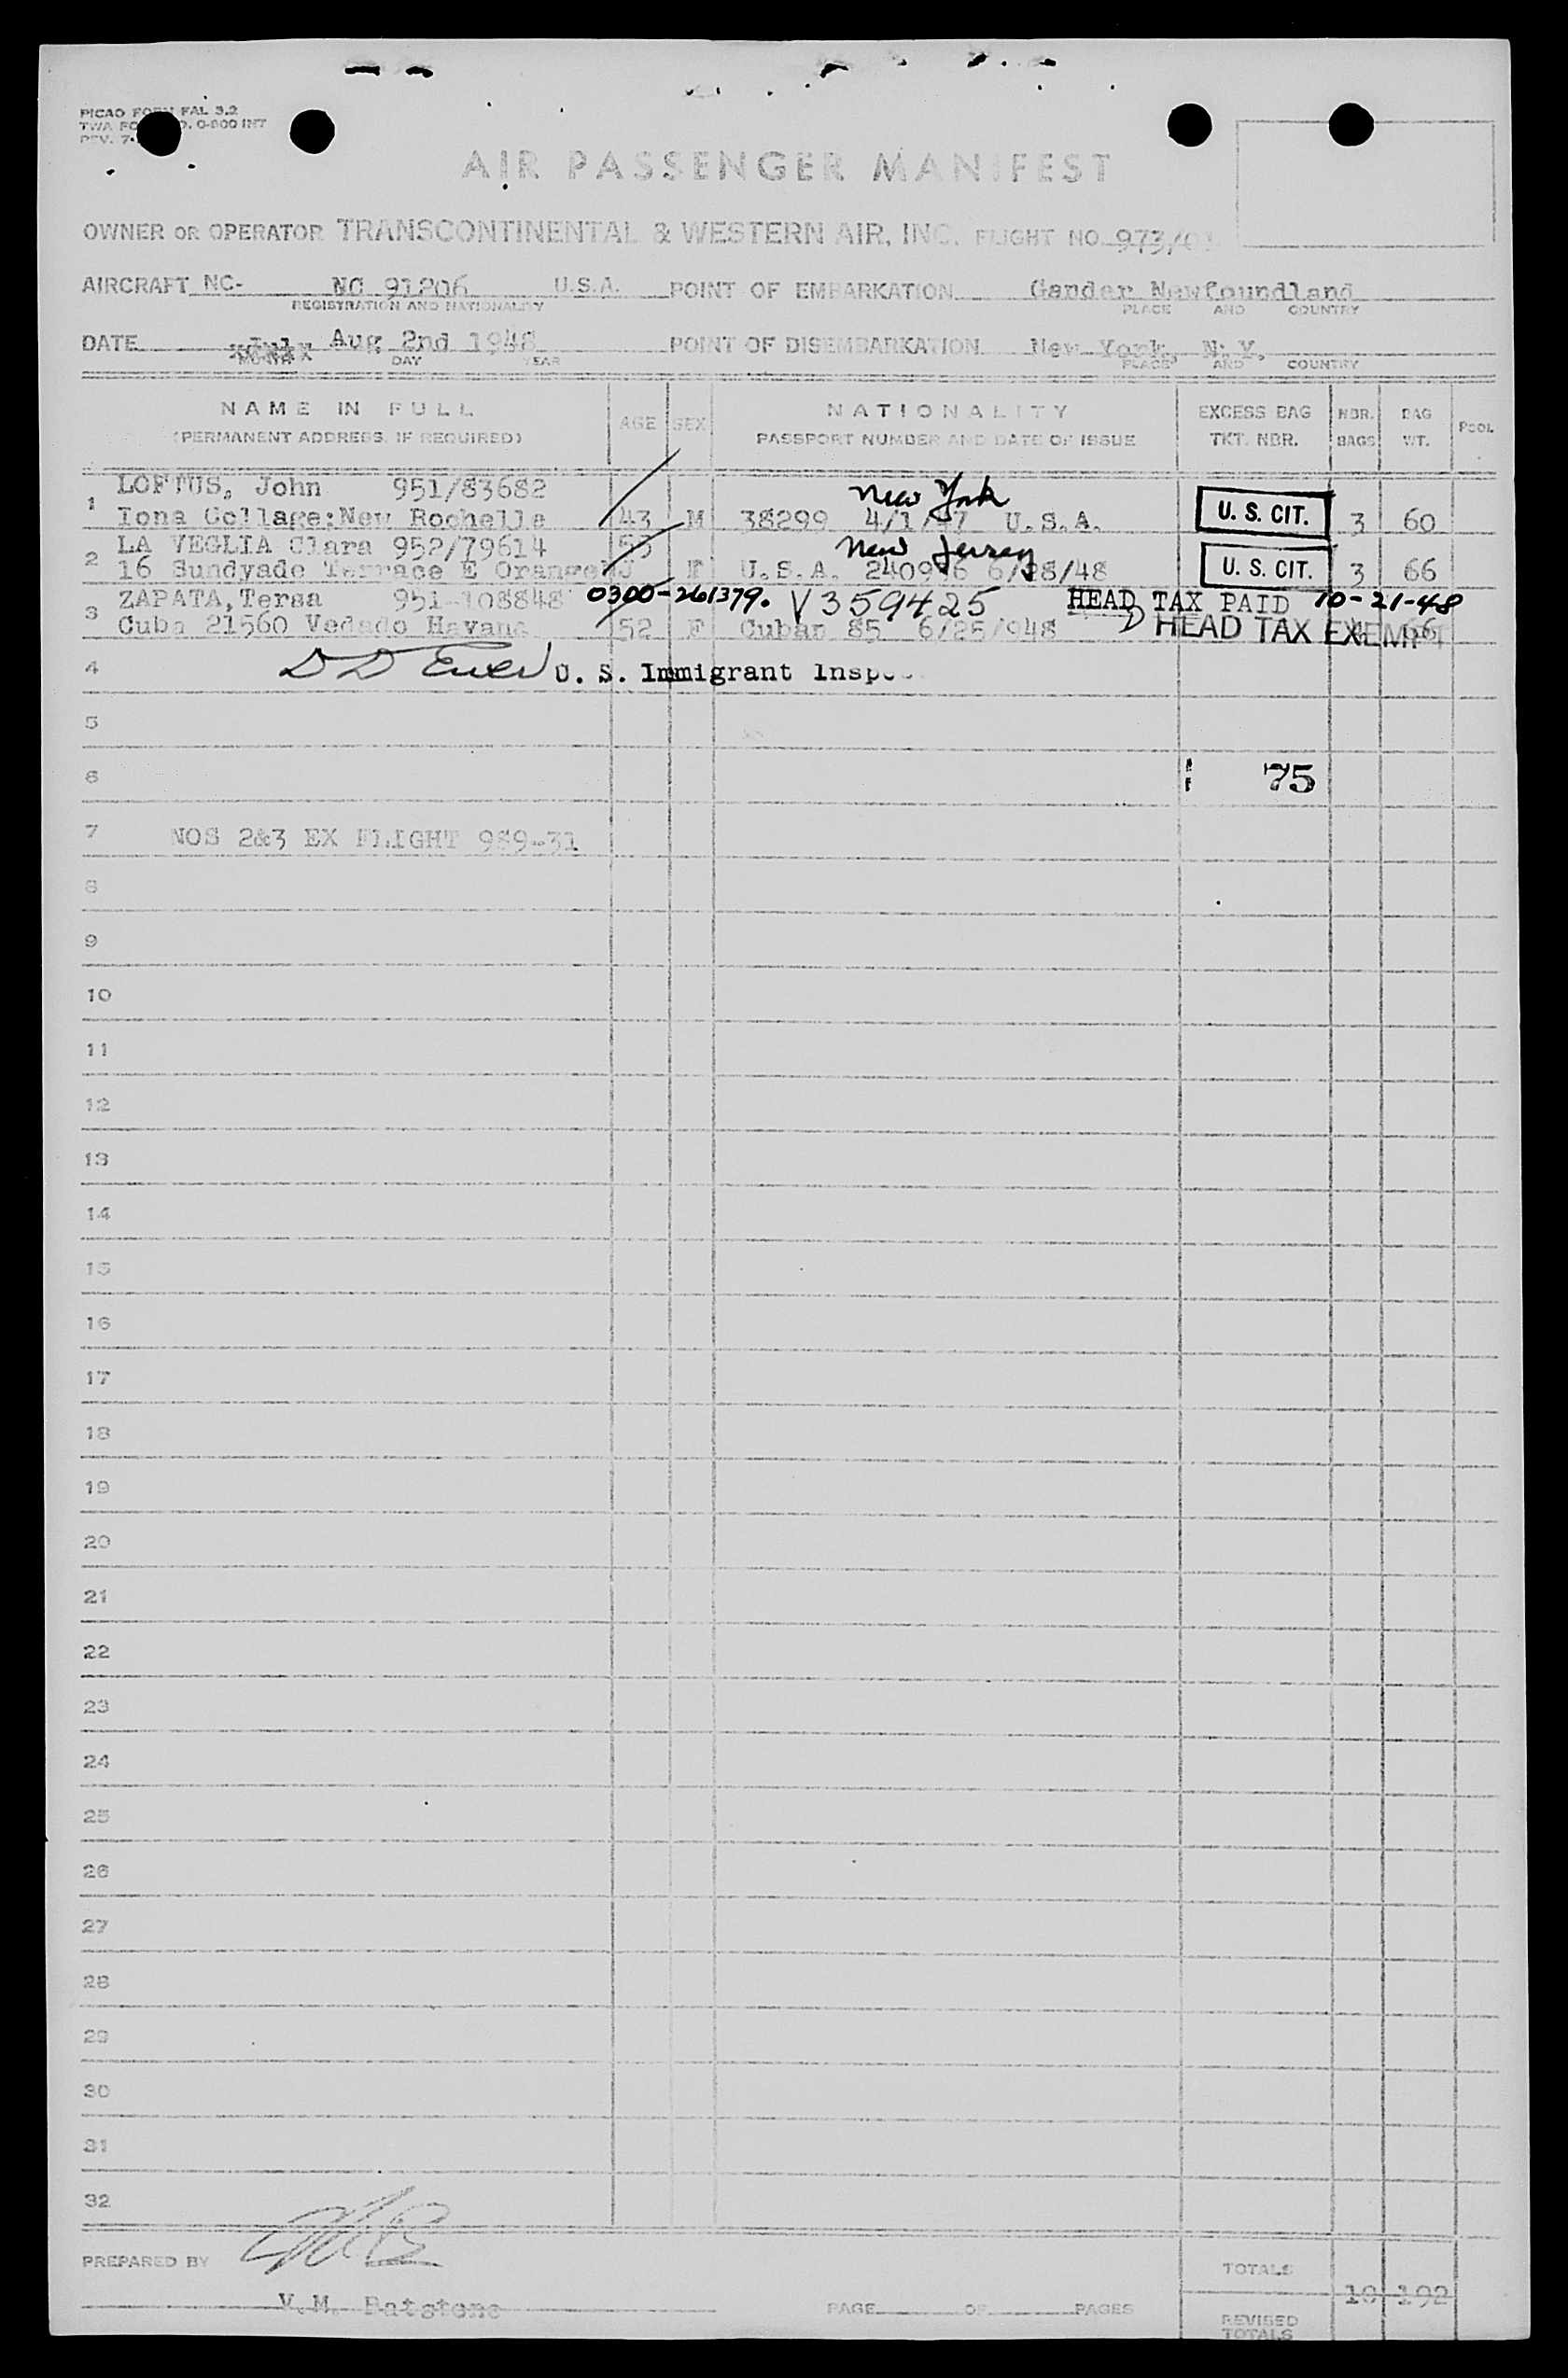 PICAO FORM FAL 3.2
TWA O-800 INT
REV. 7-
AIR PASSENGER MANIFEST
OWNER OR OPERATOR TRANSCONTINENTAL & WESTERN AIR, INC. FLIGHT NO. 973/01
AIRCRAFT NC- NC 91206 U.S.A. POINT OF EMBARKATION Gander Newfoundland
REGISTRATION AND NATIONALITY PLACE AND COUNTRY
DATE Aug 2nd 1948 POINT OF DISEMBARKATION New York, N.Y.
MONTH DAY YEAR PLACE AND COUNTRY
NAME IN FULL AGE SEX NATIONALITY EXCESS BAG NBR. BAG POOL
(PERMANENT ADDRESS, IF REQUIRED) PASSPORT NUMBER AND DATE OF ISSUE TKT. NBR. BAGS WT.
LOFTUS, John 951/83682 New York
1 Iona Collage;New Rochelle 43 M 38299 4/1/47 U.S.A. U. S. CIT. 3 60
LA VEGLIA Clara 952/79614 53 New Jersey
2 16 Sundyade Terrace E Orange NJ F U.S.A. 240946 6/28/48 U. S. CIT. 3 66
ZAPATA,Tersa 951-108848 0300-261379. V359425 HEAD TAX PAID 10-21-48
3 Cuba 21560 Vedado Havana 52 F Cuban 85 6/25/948 HEAD TAX EXEMPT 66
4 U. S. Immigrant Inspec
5
6 75
7 NOS 2&3 EX FLIGHT 989-31
8
9
10
11
12
13
14
15
16
17
18
19
20
21
22
23
24
25
26
27
28
29
30
31
32
PREPARED BY TOTALS
V.M. Batstone PAGE OF PAGES 10 192
REVISED
TOTALS